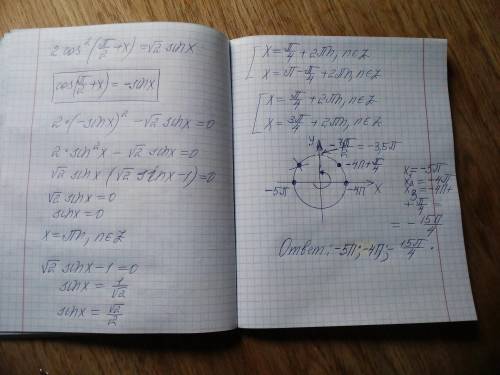 2 cos²(π/2 + x) = √2 sin x
cos(π/2 + x) = -sin x
2·(-sin x)² - √2 sin x = 0
2·sin²x - √2 sin x = 0
√2 sin x (√2 sin x - 1) = 0
√2 sin x = 0
sin x = 0
x = πn, n∈Z
√2 sin x - 1 = 0
sin x = 1/√2
sin x = √2/2
[ x = π/4 + 2πn, n∈Z
x = π - π/4 + 2πn, n∈Z
[ x = π/4 + 2πn, n∈Z
x = 3π/4 + 2πn, n∈Z
y
-7π/2 = -3,5π
-4π + π/4
-5π
-4π
x
x₁ = -5π
x₂ = -4π
x₃ = -4π +
+ π/4 =
= -15π/4
Ответ: -5π; -4π; -15π/4.